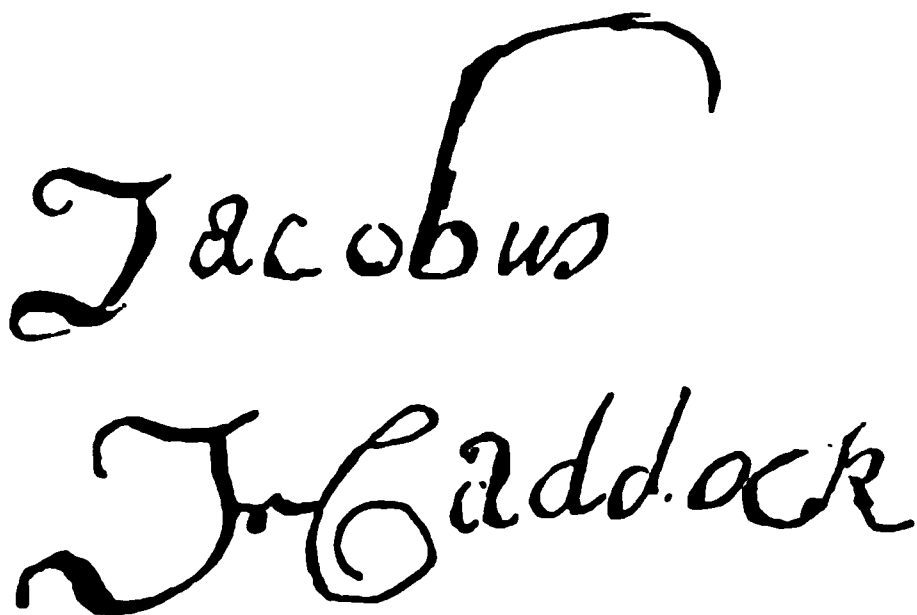 Jacobus
Haddock